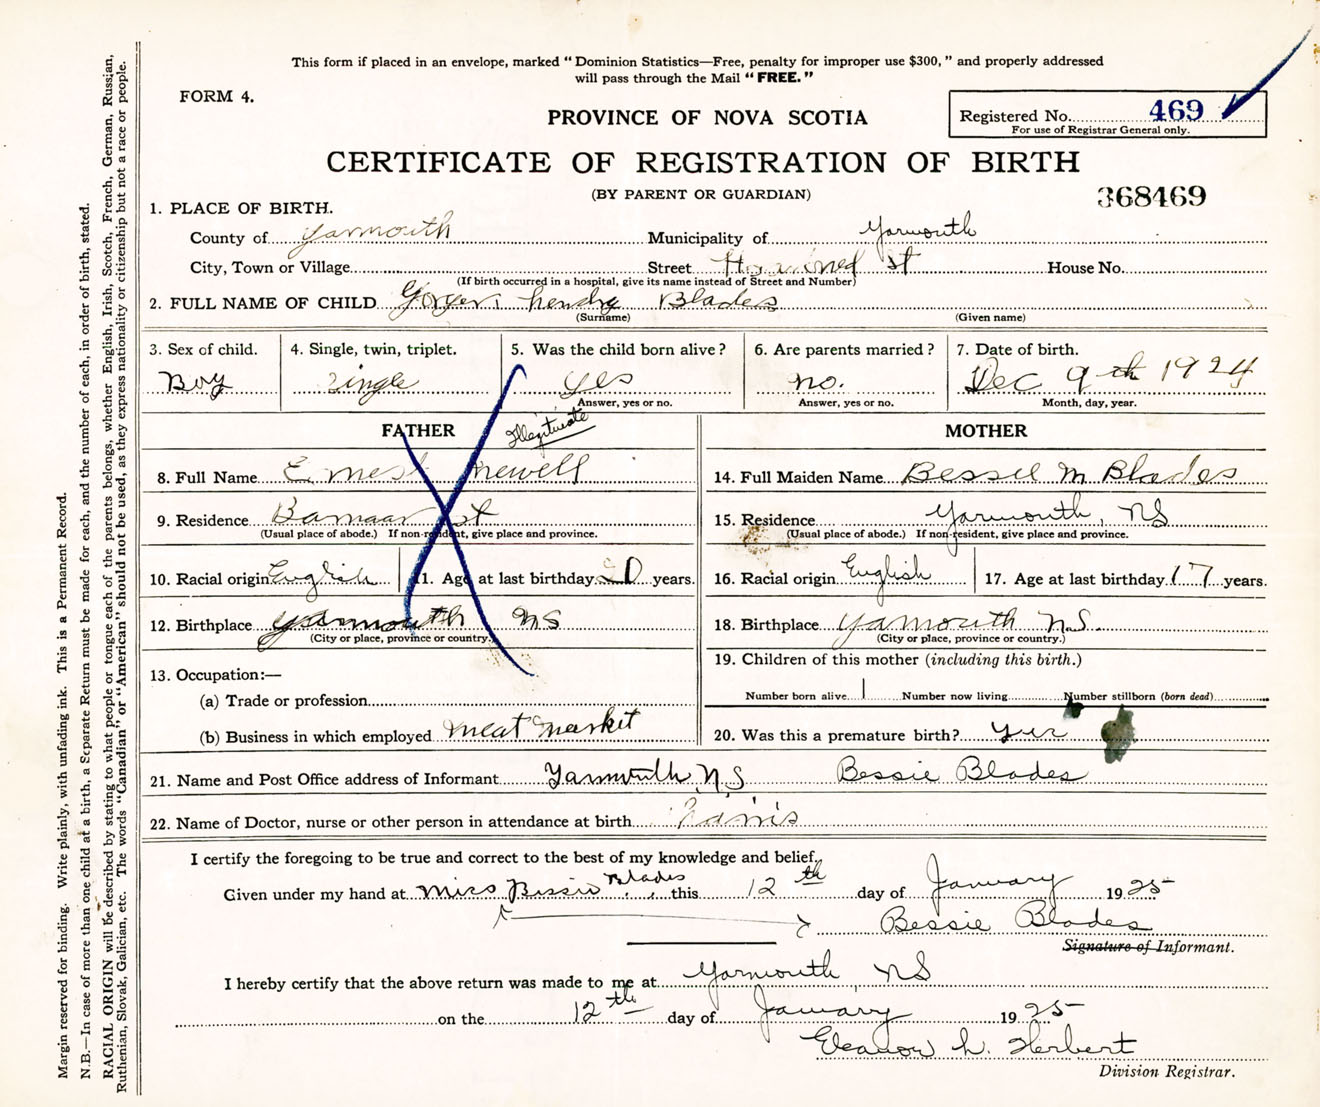 This form if placed in an envelope, marked "Dominion Statistics—Free, penalty for improper use $300," and properly addressed
will pass through the Mail "FREE."
FORM 4.
PROVINCE OF NOVA SCOTIA
Registered No. 469
For use of Registrar General only.
CERTIFICATE OF REGISTRATION OF BIRTH
(BY PARENT OR GUARDIAN)
368469
1. PLACE OF BIRTH.
County of Yarmouth Municipality of Yarmouth
City, Town or Village Street St House No.
(If birth occurred in a hospital, give its name instead of Street and Number)
2. FULL NAME OF CHILD hendry Blades
(Surname) (Given name)
3. Sex of child. 4. Single, twin, triplet. 5. Was the child born alive? 6. Are parents married? 7. Date of birth.
Boy single yes no. Dec 9th 1924
Answer, yes or no. Answer, yes or no. Month, day, year.
FATHER Illegitimate MOTHER
8. Full Name Ernest Newell 14. Full Maiden Name Bessie M Blades
9. Residence St 15. Residence Yarmouth, NS
(Usual place of abode.) If non-resident, give place and province. (Usual place of abode.) If non-resident, give place and province.
10. Racial origin English 11. Age at last birthday 20 years. 16. Racial origin English 17. Age at last birthday 17 years.
12. Birthplace Yarmouth NS 18. Birthplace Yarmouth N.S.
(City or place, province or country.) (City or place, province or country.)
13. Occupation:— 19. Children of this mother (including this birth.)
(a) Trade or profession Number born alive 1 Number now living Number stillborn (born dead)
(b) Business in which employed Meat Market 20. Was this a premature birth?
21. Name and Post Office address of Informant Yarmouth, N,S Bessie Blades
22. Name of Doctor, nurse or other person in attendance at birth
I certify the foregoing to be true and correct to the best of my knowledge and belief,
Given under my hand at Miss Bessie Blades this 12th day of January 1925
Bessie Blades
Signature of Informant.
I hereby certify that the above return was made to me at Yarmouth NS
on the 12th day of January 1925
Eleanor L. Herbert
Division Registrar.
Margin reserved for binding. Write plainly, with unfading ink. This is a Permanent Record.
N.B.—In case of more than one child at a birth, a Separate Return must be made for each, and the number of each, in order of birth, stated.
RACIAL ORIGIN will be described by stating to what people or tongue each of the parents belongs, whether English, Irish, Scotch, French, German, Russian,
Ruthenian, Slovak, Galician, etc. The words "Canadian" or "American" should not be used, as they express nationality or citizenship but not a race or people.